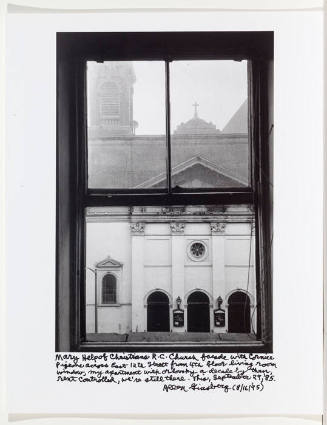 Mary Help of Christians R.C. Church, facade with Cornice
Pigeons across East 12th Street from 4th floor living room
window, my apartment with Orlovsky a decade by then,
rent controlled, we're still there. Thurs, September 27, '85.
Allen Ginsberg (8/16/95)